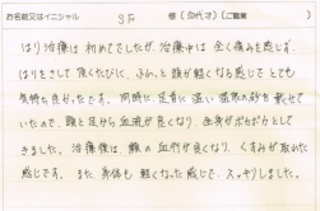 お名前又はイニシャル 様 (60代才) (ご職業 )
はり治療は初めてでしたが、治療中は全く痛みを感じず、
はりをさして頂くたびに、ふわっと頭が軽くなる感じでとても
気持ち良かったです。同時に、足首に温い 砂を載せて
いたので、頭と足から血流が良くなり、全身がポカポカとして
きました。治療後は、顔の血行が良くなり、くすみが取れた
感じです。また、身体も軽くなった感じで、スッキリしました。